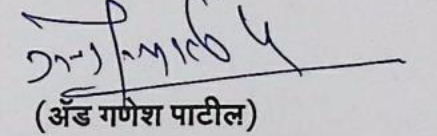 (ॲड गणेश पाटील)